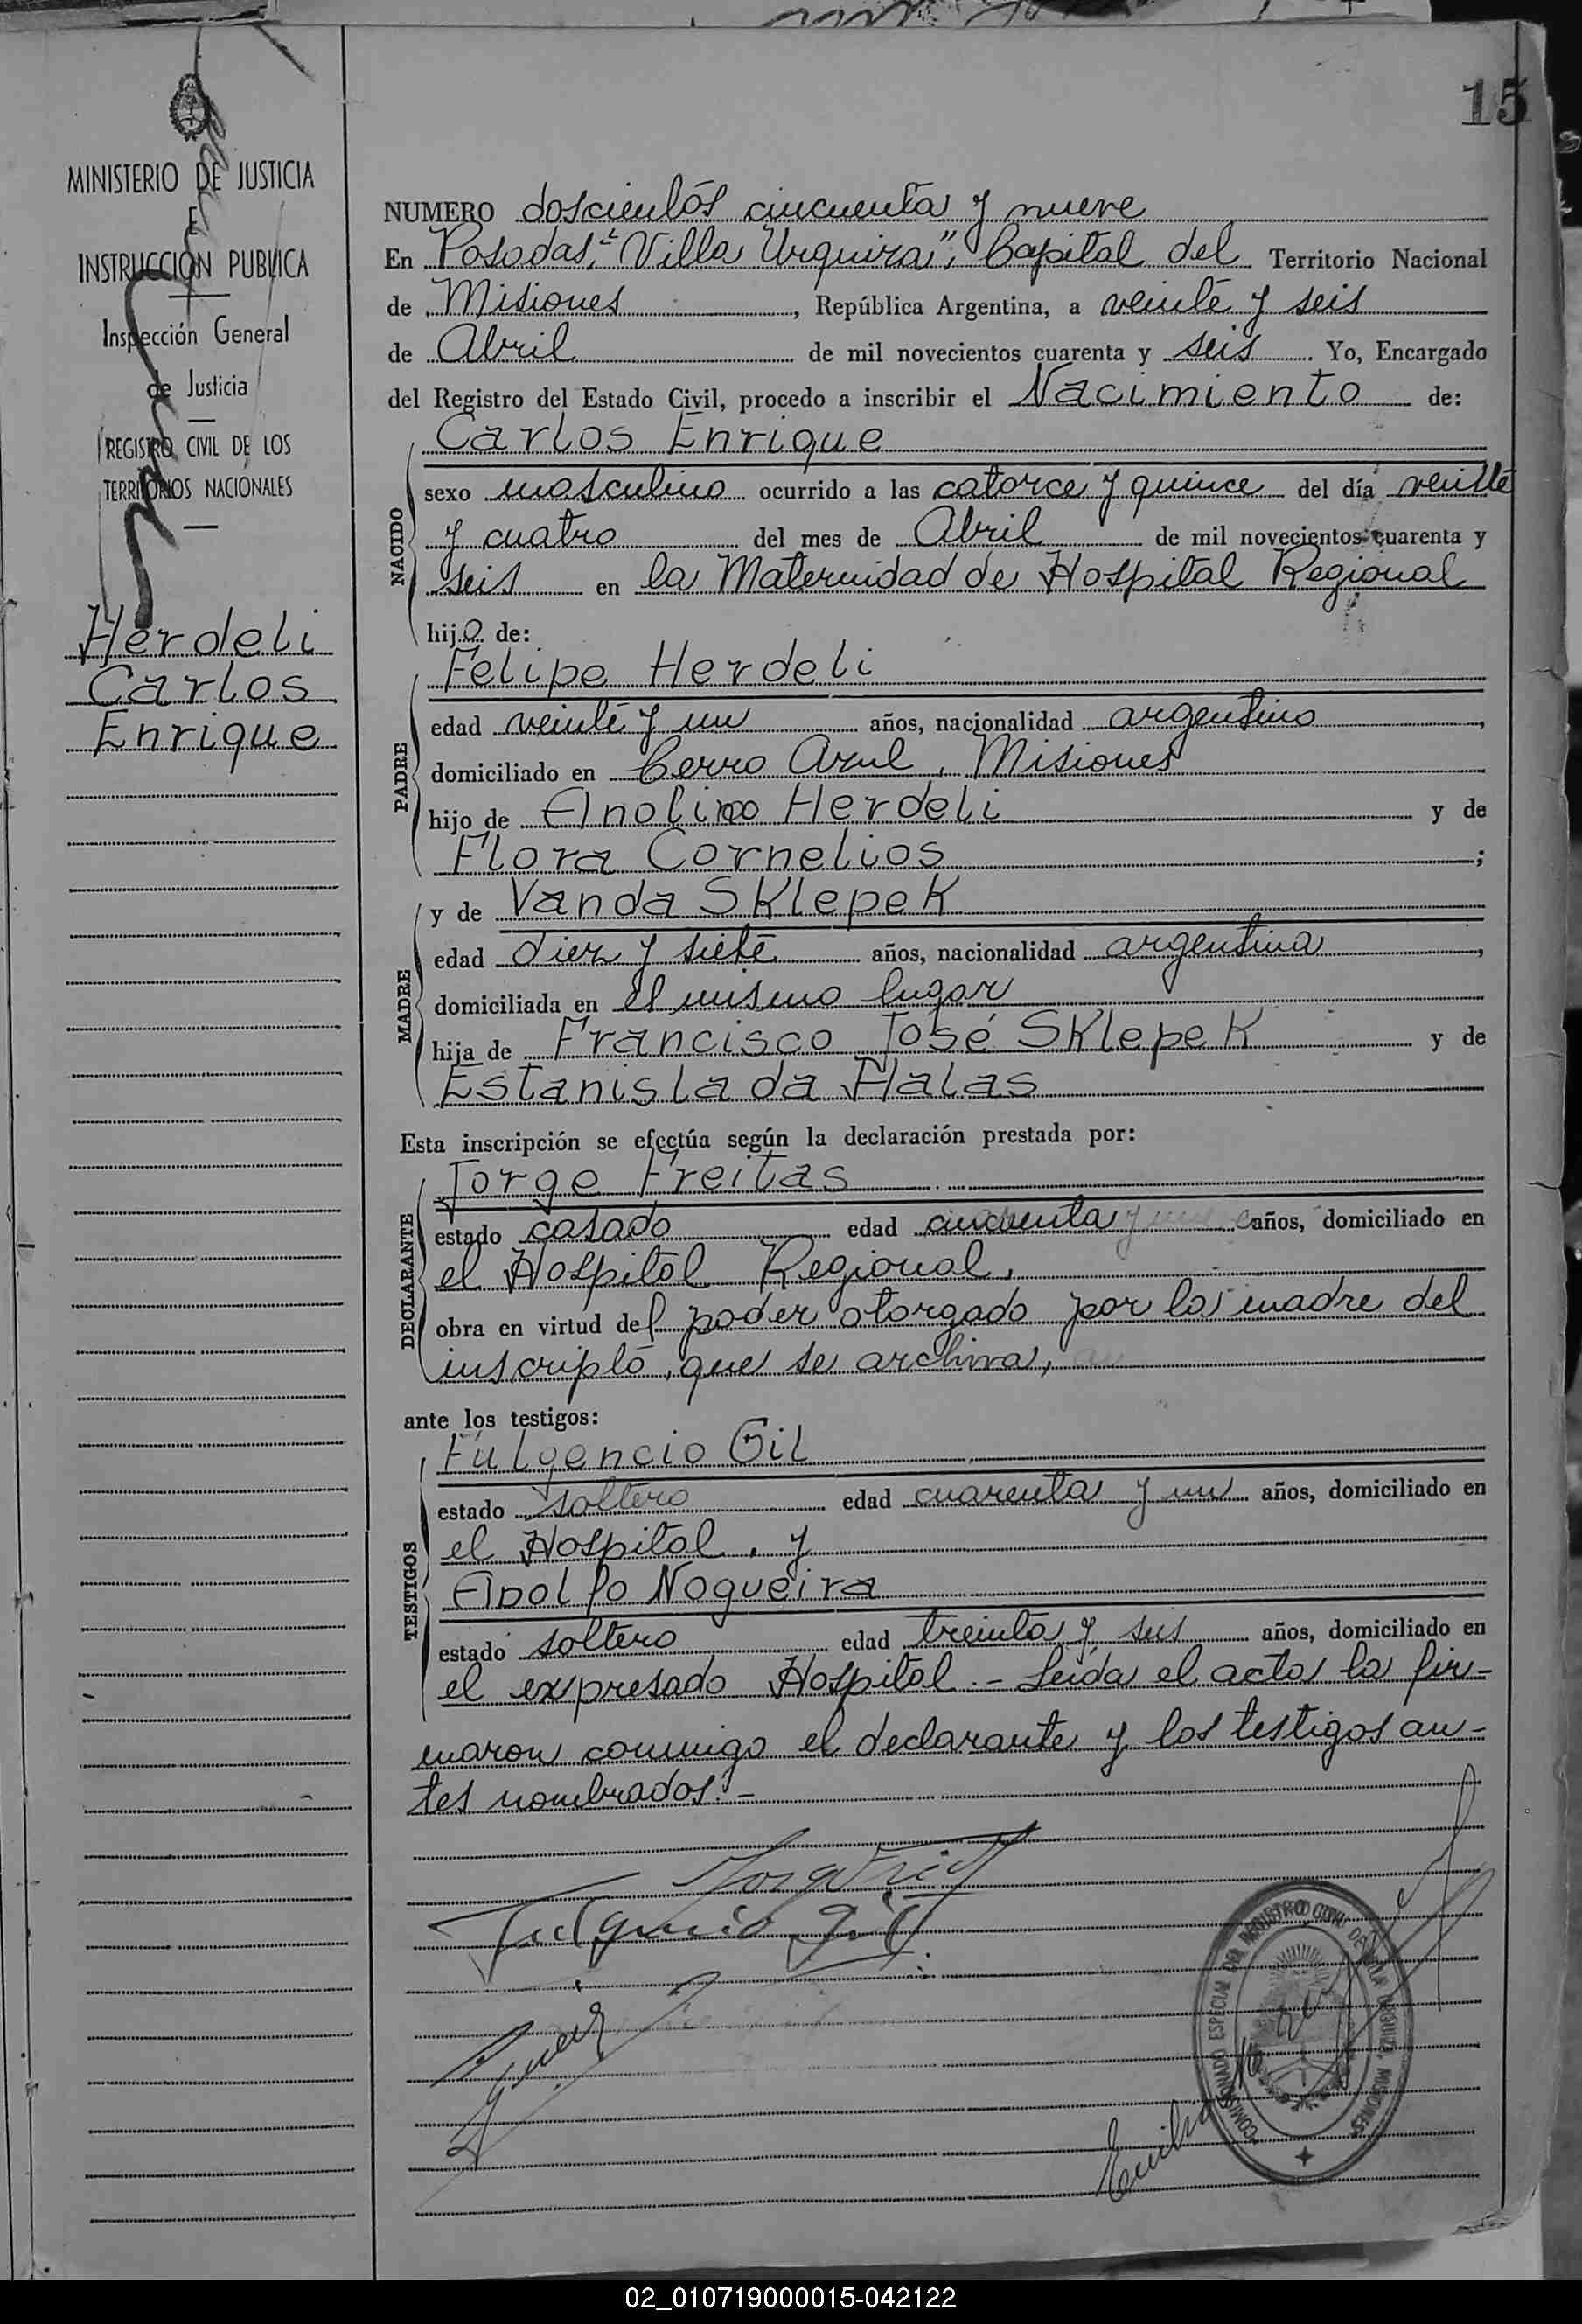 15
MINISTERIO DE JUSTICIA
E
INSTRUCCION PUBLICA
Inspección General
de Justicia
REGISTRO CIVIL DE LOS
TERRITORIOS NACIONALES
Herdeli
Carlos
Enrique
NUMERO doscientos cincuenta y nueve
En Posadas, "Villa Urquiza", Capital del Territorio Nacional
de Misiones, República Argentina, a veinte y seis
de Abril de mil novecientos cuarenta y seis. Yo, Encargado
del Registro del Estado Civil, procedo a inscribir el Nacimiento de:
Carlos Enrique
NACIDO
sexo masculino ocurrido a las catorce y quince del día veinte
y cuatro del mes de Abril de mil novecientos cuarenta y
seis en la Maternidad de Hospital Regional
hijo de:
Felipe Herdeli
PADRE
edad veinte y un años, nacionalidad argentino,
domiciliado en Cerro Azul, Misiones
hijo de Herdeli y de
Flora Cornelios;
MADRE
y de Vanda Sklepek
edad diez y siete años, nacionalidad argentina,
domiciliada en el mismo lugar
hija de Francisco José Sklepek y de
Estanislada Halas
Esta inscripción se efectúa según la declaración prestada por:
Jorge Freitas
DECLARANTE
estado casado edad cincuenta años, domiciliado en
el Hospital Regional,
obra en virtud del poder otorgado por la madre del
inscripto, que se archiva,
ante los testigos:
Fulgencio Gil
TESTIGOS
estado soltero edad cuarenta y un años, domiciliado en
el Hospital, y
Adolfo Nogueira
estado soltero edad treinta y seis años, domiciliado en
el expresado Hospital.- Leída el acta la fir-
maron conmigo el declarante y los testigos an-
tes nombrados.-
Fulgencio Gil
COMISIONADO ESPECIAL DEL REGISTRO CIVIL DE VILLA URQUIZA, MISIONES
02_010719000015-042122